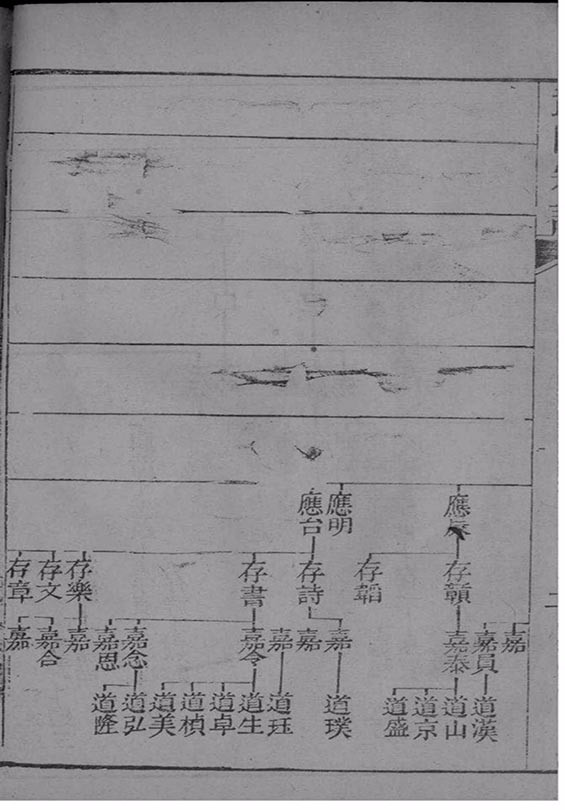 應辰
應明
應台
存贑
存韜
存詩
存書
存樂
存文
存章
嘉
嘉員
嘉泰
嘉
嘉
嘉
嘉令
嘉念
嘉恩
嘉
嘉合
嘉
道漢
道山
道京
道盛
道璞
道珏
道生
道卓
道楨
道美
道弘
道隆